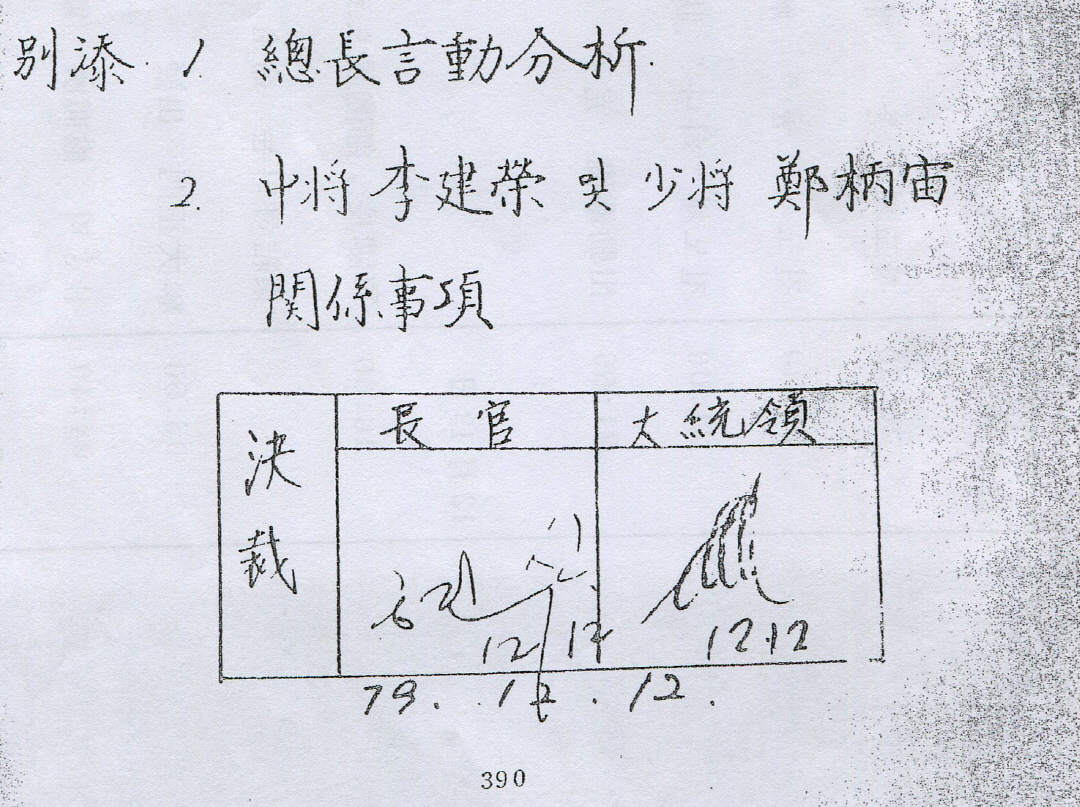 別添. 1. 總長言動分析.
2. 中將 李建榮 및 少將 鄭柄宙
関係事項
決裁
長官
大統領
12 12
12.12
79. 12. 12.
390